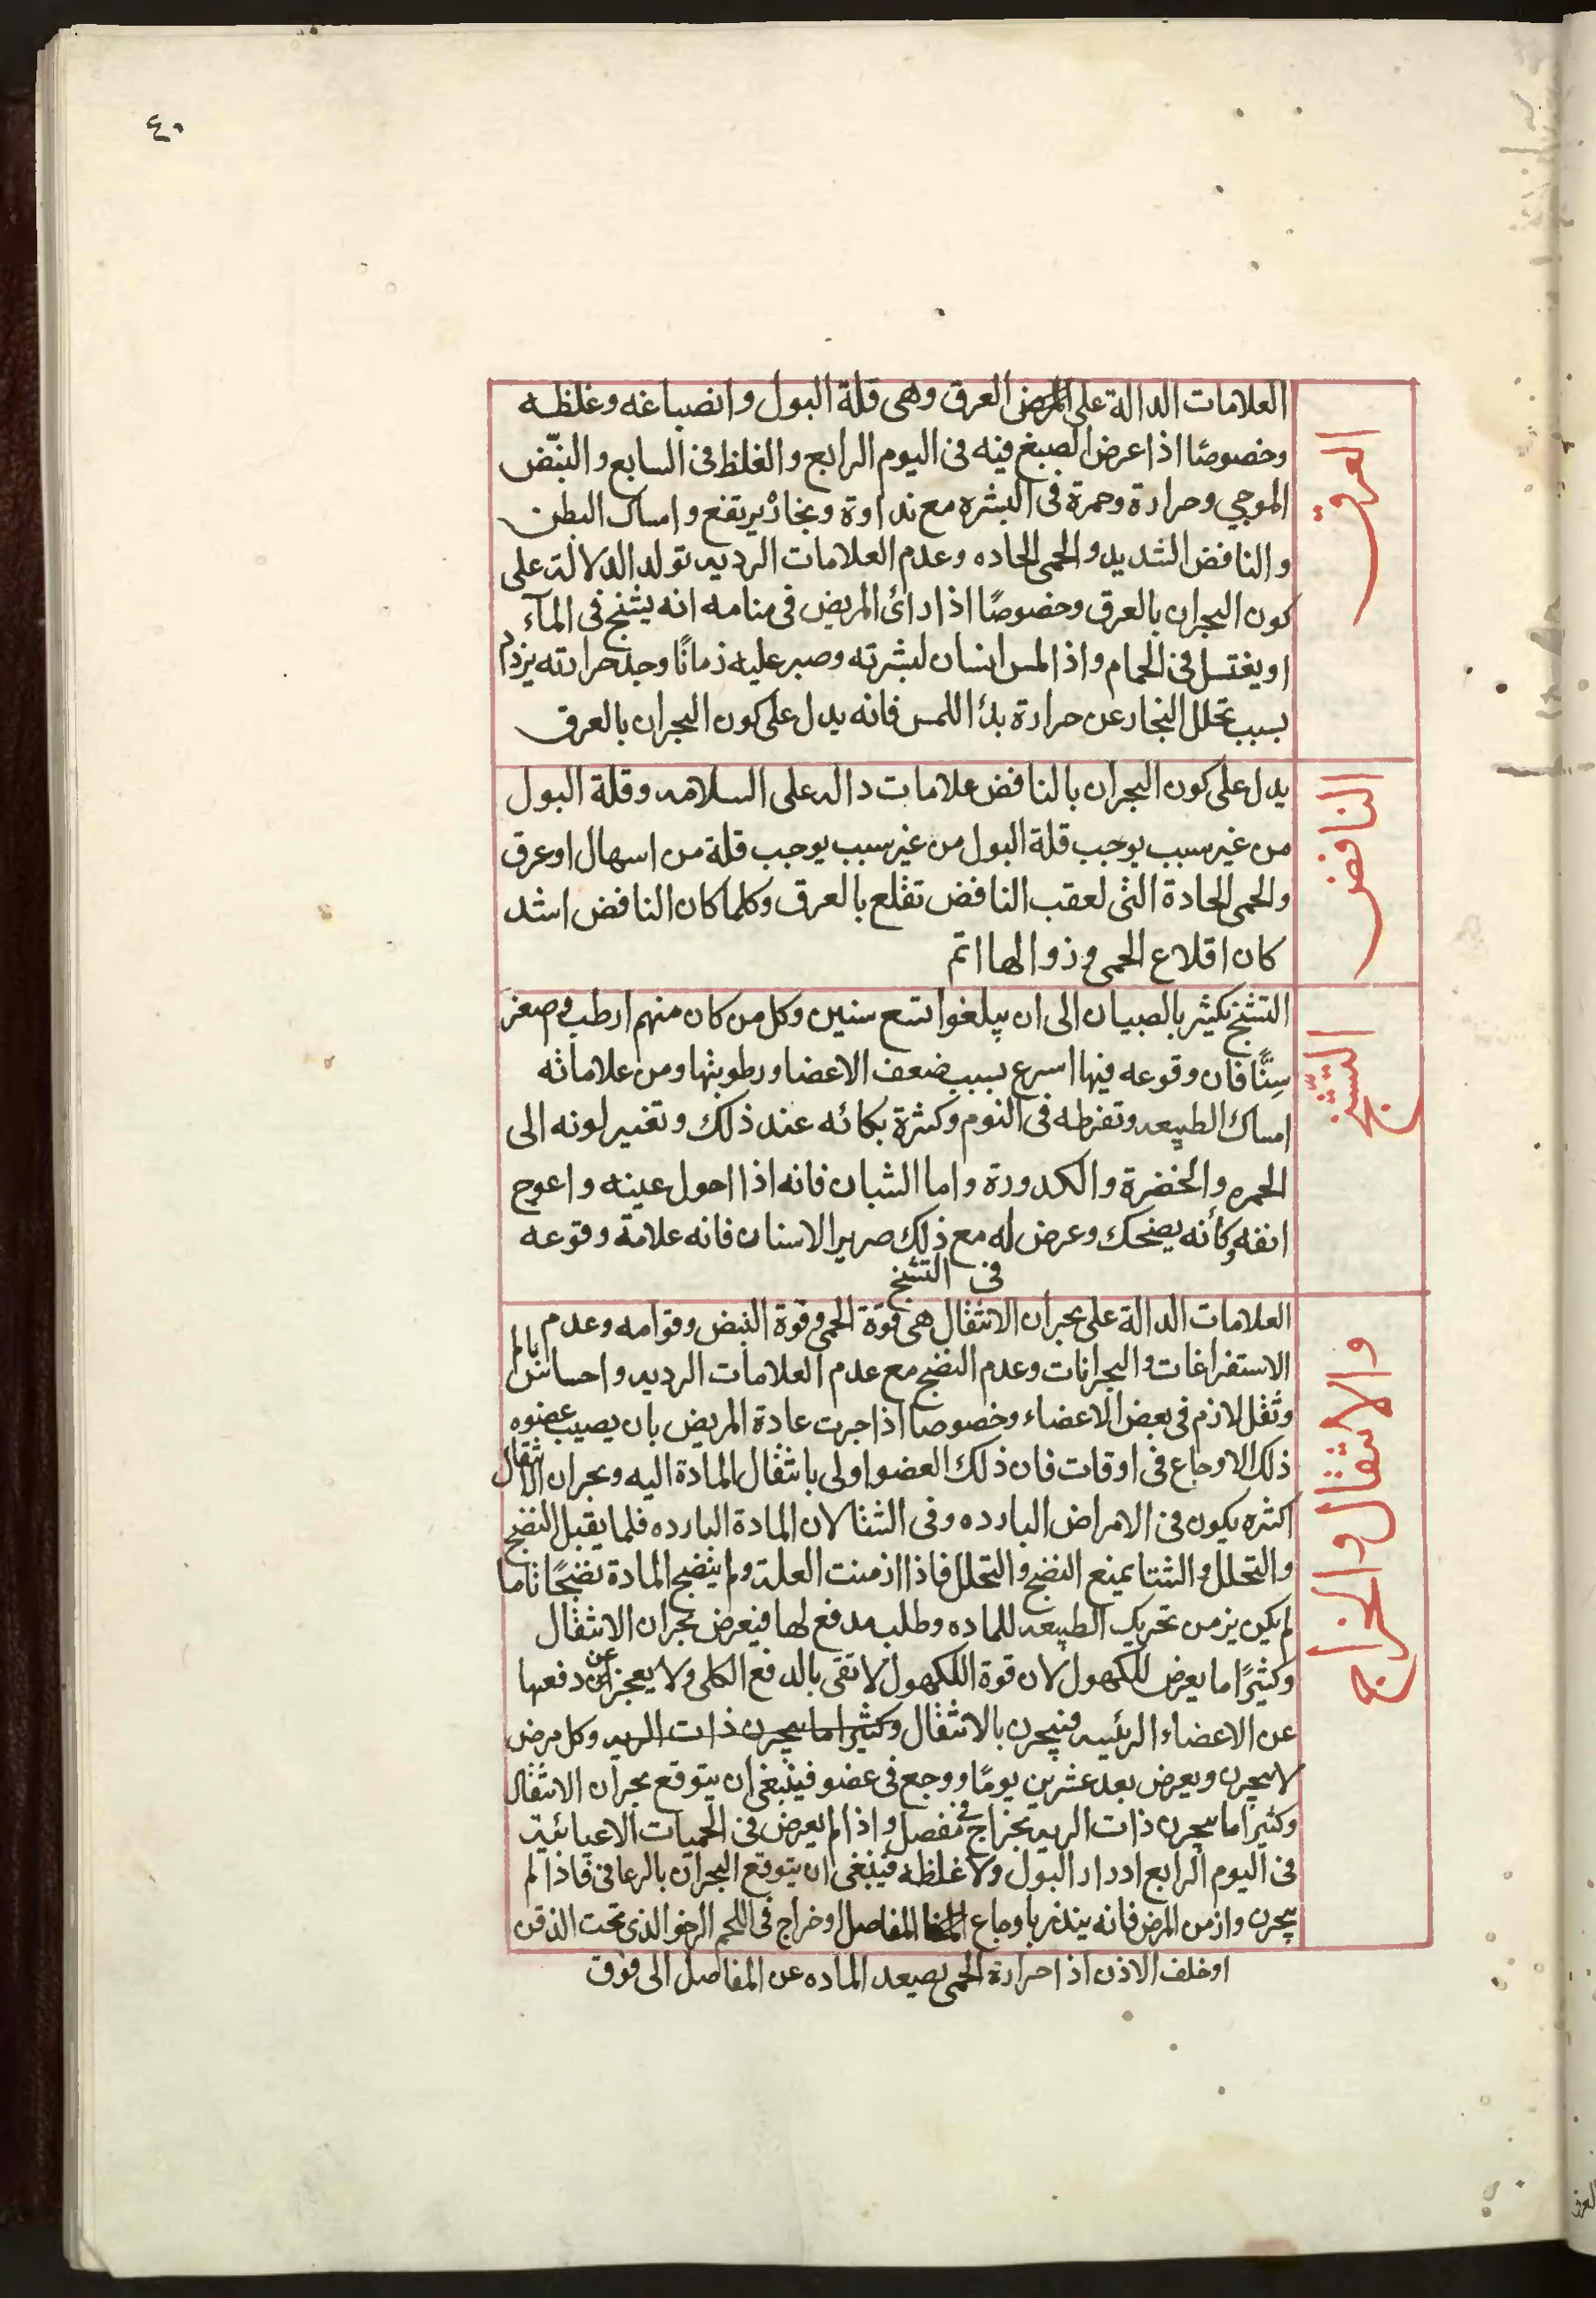 ٤٠
العرق
العلامات الدالة على العرق وهى قلة البول وانصباغه وغلظه
وخصوصًا اذا عرض الصبغ فيه فى اليوم الرابع والغلظ فى السابع والنبض
الموجي وحرارة وحمرة فى البشره مع نداوة وبخار يرتفع وامساك البطن
والنافض الشديد والحمى الحاده وعدم العلامات الرديه تولد الدلالة على
كون البحران بالعرق وخصوصًا اذا رائ المريض فى منامه انه يشنج فى المآء
او يغتسل فى الحمام واذا لمس انسان لبشرته وصبر عليه زمانًا وجد حرارته يزدم
بسبب تحلل البخار عن حرارة بدا اللمس فانه يدل على كون البحران بالعرق
النافض
يدل على كون البحران بالنافض علامات داله على السلامه وقلة البول
من غير سبب يوجب قلة البول من غير سبب يوجب قلة من اسهال او عرق
والحمى الحادة التى لعقب النافض تقلع بالعرق وكلما كان النافض اشد
كان اقلاع الحمى وزوالها اتم
التشنج
التشنج يكثير بالصبيان الى ان يبلغوا تسع سنين وكل من كان منهم ارطب وصغر
سِنًّا فان وقوعه فيها اسرع بسبب ضعف الاعضا ورطوبتها ومن علاماته
امساك الطبيعه وتفرطه فى النوم وكثرة بكائه عند ذلك وتغير لونه الى
الحمره والخضرة والكدورة واما الشبان فانه اذا احول عينه واعوج
انفه وكأنه يضحك وعرض له مع ذلك صرير الاسنان فانه علامة وقوعه
فى التشنج
والانتقال والخراج
العلامات الدالة على بحران الانتقال هى قوة الحمى وقوة النبض وقوامه وعدم
الاستفراغات والبحرانات وعدم النضج مع عدم العلامات الرديه واحساس بالم
وثقل لازم فى بعض الاعضاء وخصوصا اذا جرت عادة المريض بان يصيب عضوه
ذلك الاوجاع فى اوقات فان ذلك العضو اولى بانتقال المادة اليه وبحران الانتقال
اكثره يكون فى الامراض البارده وفى الشتا لان المادة البارده قلما يقبل النضج
والتحلل والشتا يمنع النضج والتحلل فاذا ازمنت العلة ولم ينضج المادة نضجًا تاما
لم يكن يزمن تحريك الطبيعه للماده وطلب مدفع لها فيعرض بحران الانتقال
وكثيرًا ما يعرض للكهول لان قوة اللكهول لا تقى بالدفع الكلى ولا يعجز عن دفعها
عن الاعضاء الرئيسه فيبحرن بالانتقال وكثيرا ما يبحرن ذات الريه وكل مرض
لا يبحرن ويعرض بعد عشرين يومًا ووجع فى عضو فينبغى ان يتوقع بحران الانتقال
وكثيرا ما يبحرن ذات الريه بخراج فى مفصل واذا لم يعرض فى الحميات الاعيائية
فى اليوم الرابع ادرار البول ولا غلظه فينبغى ان يتوقع البحران بالرعاف فاذا لم
يبحرن وازمن المرض فانه ينذر باوجاع المفاصل او خراج فى اللحم الرخو الذى تحت الذقن
او خلف الاذن اذا حرارة الحمى يصعد الماده عن المفاصل الى فوق